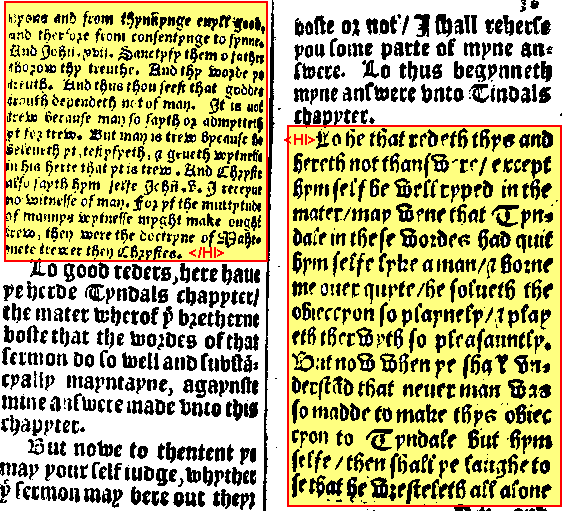 wpous and from thynkynge euyll good,
and therfore from consentynge to synne.
And John. xvii. Sanctyfy them o father
thorow thy treuthe. And thy worde ys
treuth. And thus thou seest that goddes
trouth dependeth not of man. It is not
trew because man so sayth or admytteth
yt for trew. But man is trew bycause he
beleueth yt, testyfyeth, & geueth wytnesse
in his herte that yt is trew. And Chryste
also sayth hym selfe John. v. I receyue
no witnesse of man. For yf the multytude
of mannys wytnesse myght make ought
trew, then were the doctryne of Mahо-
mete trewer then Chrystes. </HI>
Lo good reders, here haue
ye herde Tyndals chapyter/
the mater wherof ẏ bretherne
boste that the wordes of that
sermon do so well and substā-
cyally mayntayne, agaynste
mine answere made vnto this
chapyter.
But nowe to thentent ye
may your self iudge, whyther
ẏ sermon may bere out theyr
boste or not/ I shall reherse
you some parte of myne an-
swere. Lo thus begynneth
myne answere vnto Tindals
chapyter.
<HI>Lo he that redeth thys and
hereth not thanswere/ except
hym self be well ryped in the
mater/may wene that Tyn-
dale in these wordes had quit
hym selfe lyke a man/& borne
me ouer quyte/he solueth the
obieccyon so playnely/& play
eth therwyth so pleasauntly.
But now when ye shall vn-
derstād that neuer man was
so madde to make thys obiec
cyon to Tyndale but hym
selfe/then shall ye laughe to
se that he wresteleth all alone